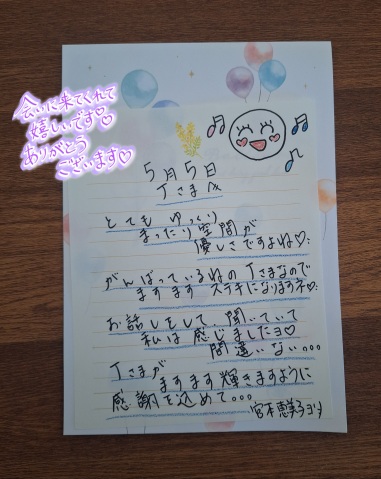 会いに来てくれて
嬉しいです♡
ありがとう
ございます♡
5月5日
Tさまへ
とても ゆっくり
まったり空間が
優しさですよね♡
がんばっているねの Tさまなので
ますます ステキになりますネ♡
お話しをして、聞いていて
私は感じましたヨ♡
間違いない…
Tさまが
ますます輝きますように
感謝を込めて…
宮本恵美子ヨリ